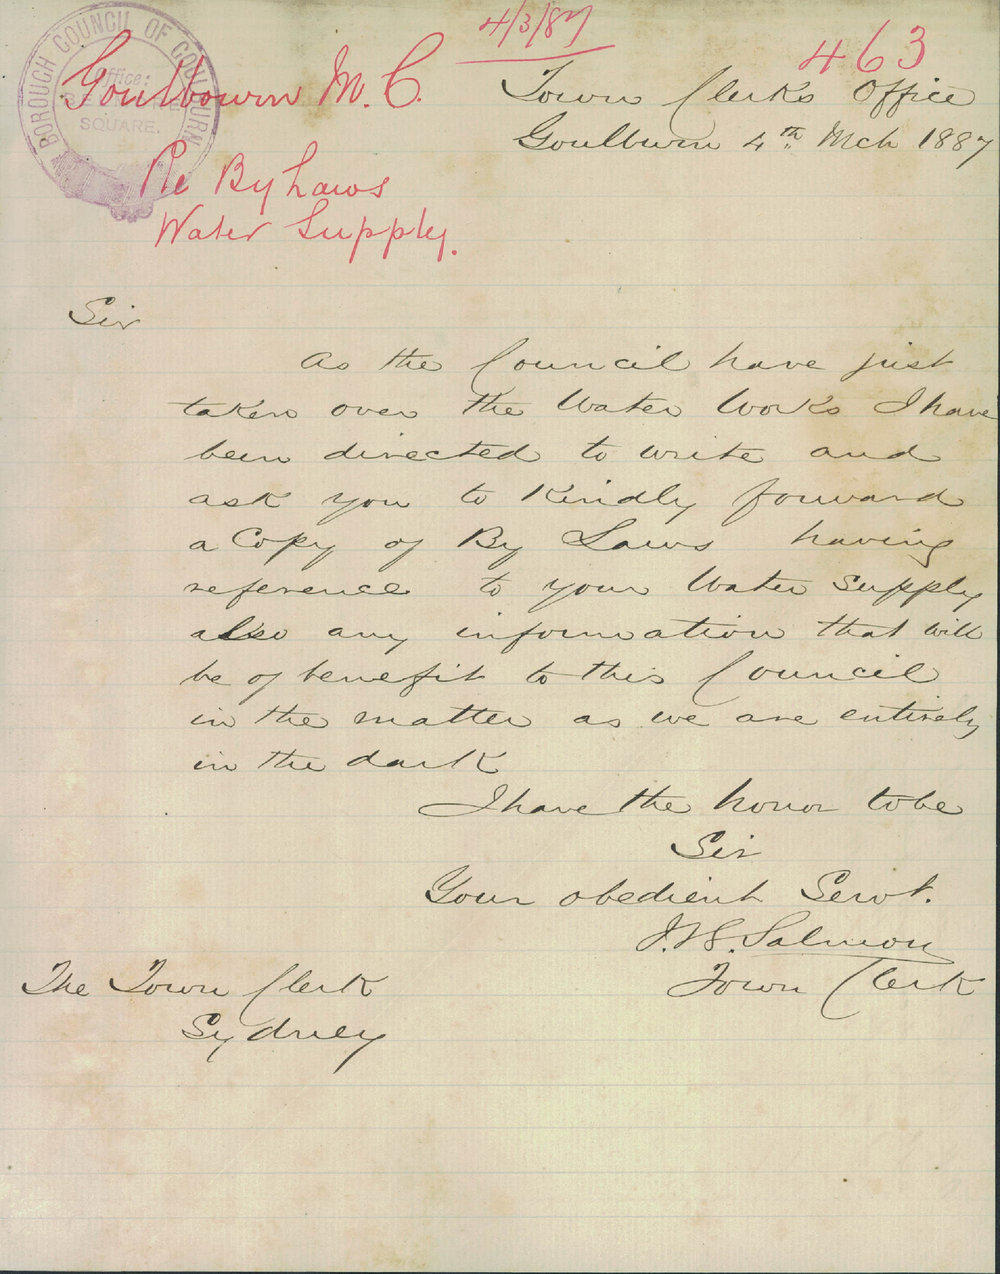 4/3/87
463
BOROUGH COUNCIL OF GOULBURN
Office:
SQUARE.
Goulbourn M.C.
Re By Laws
Water Supply.
Town Clerks Office
Goulburn 4th Mch 1887
Sir
As the Council have just
taken over the Water Works I have
been directed to write and
ask you to Kindly forward
a Copy of By Laws having
reference to your Water Supply
also any information that will
be of benefit to this Council
in the matter as we are entirely
in the dark
I have the honor to be
Sir
Your obedient Servt.
Salmon
Town Clerk
The Town Clerk
Sydney